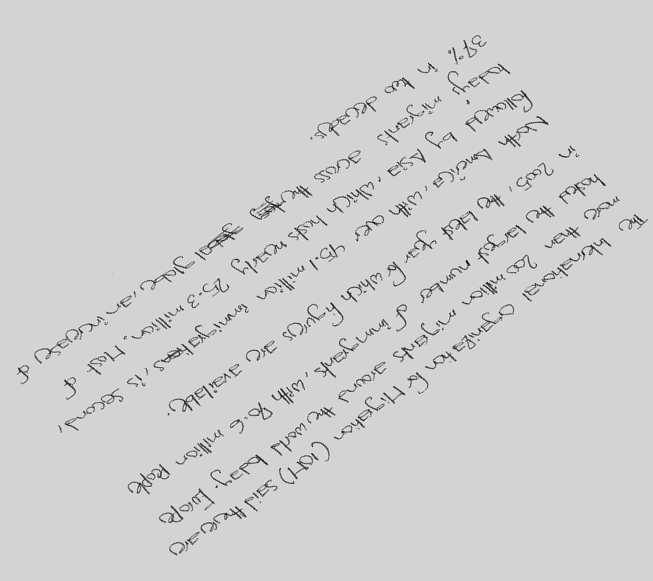 The International Organization for Migration (IOM) said there are
more than 200 million migrants around the world today. Europe
hosted the largest number of immigrants, with 70.6 million people
in 2005, the latest year for which figures are available.
North America, with over 45.1 million immigrations, is second,
followed by Asia, which hosts nearly 25.3 million. Most of
today's migrants across the globe, an increase of
37% in two decades.